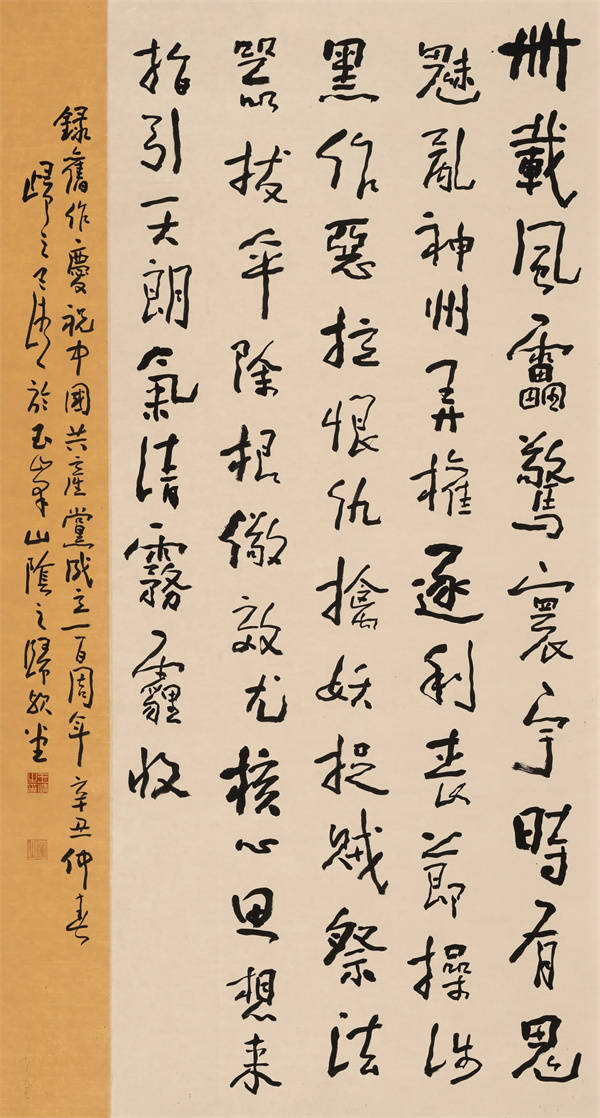 卌載風靁驚寰宇時有鬼
魅亂神州弄權逐利喪節操涉
黑作惡拉恨仇擒妖捉賊祭法
器拔傘除根儆效尤核心思想来
指引天朗氣清霧霾收
録舊作慶祝中國共產黨成立一百周年辛丑仲春
歸之於玉峯山陰之歸欤堂